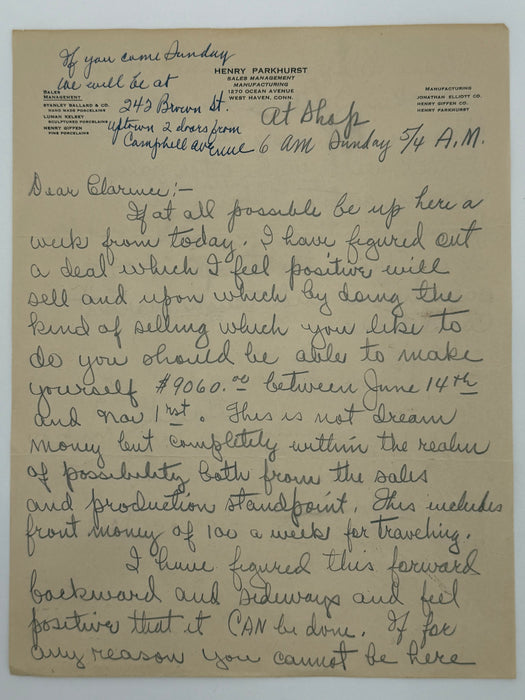 If you come Sunday
we will be at
242 Brown St.
uptown 2 doors from
Campbell avenue
HENRY PARKHURST
SALES MANAGEMENT
MANUFACTURING
1270 OCEAN AVENUE
WEST HAVEN, CONN.
SALES
MANAGEMENT
STANLEY BALLARD & CO.
HAND MADE PORCELAINS
LUMAN KELSEY
SCULPTURED PORCELAINS
HENRY GIFFEN
FINE PORCELAINS
MANUFACTURING
JONATHAN ELLIOTT CO.
HENRY GIFFEN CO.
HENRY PARKHURST
At Shop
6 AM Sunday 5/4 A.M.
Dear Clarence;-
If at all possible be up here a
week from today. I have figured out
a deal which I feel positive will
sell and upon which by doing the
kind of selling which you like to
do you should be able to make
yourself $9060.00 between June 14th
and Nov 1rst. This is not dream
money but completely within the realm
of possibility both from the sales
and production standpoint. This includes
front money of 100 a week for traveling.
I have figured this forward
backward and sideways and feel
positive that it CAN be done. If for
any reason you cannot be here